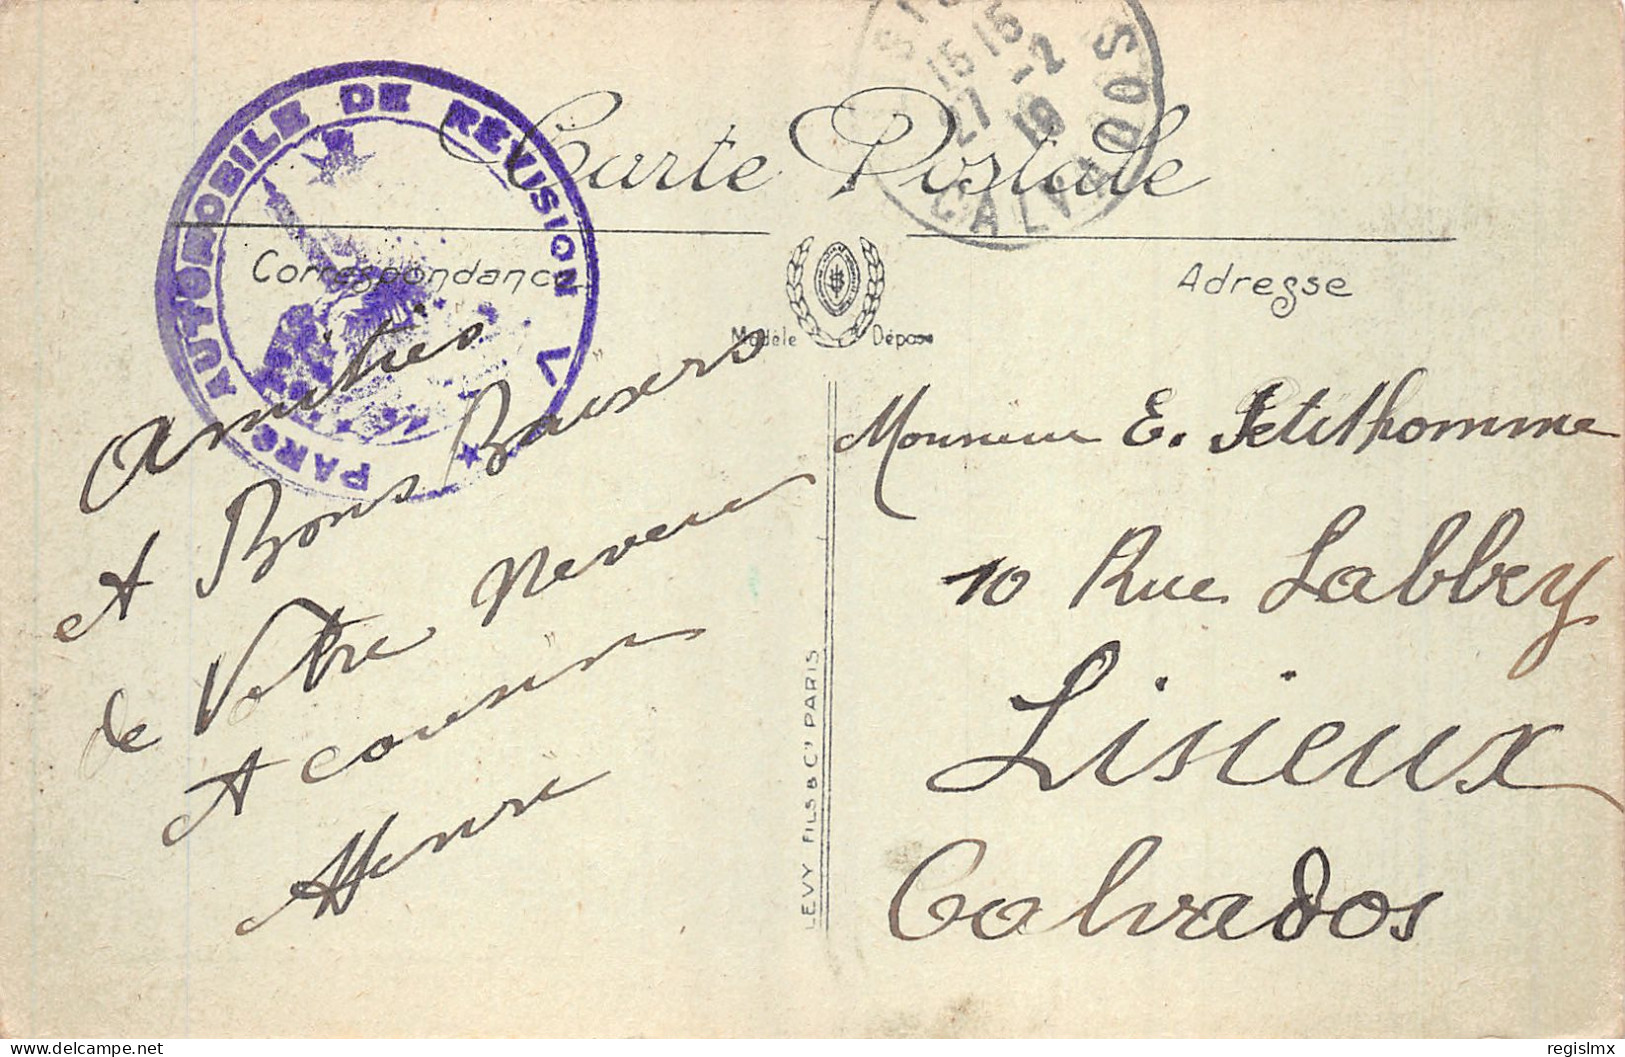 PARC AUTOMOBILE DE REVISION V
15 15
27 -2
19
CALVADOS
Carte Postale
Correspondance
Adresse
Modèle Déposé
Amitiés
et Bons Baisers
de Votre Neveu
et cousin
Henri
LEVY FILS & Cie PARIS
Monsieur E. Petithomme
10 Rue Labbey
Lisieux
Calvados
regislmx